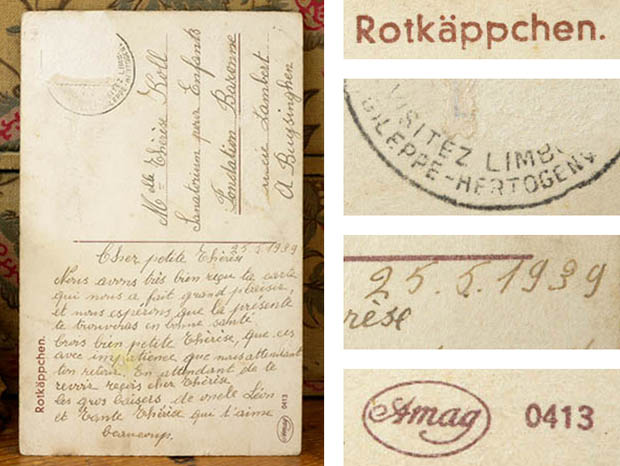 VISITEZ LIMB
GILEPPE-HERTOGENW
Mlle Thérèse Koll
Sanatorium pour Enfants
Fondation Baronne
Lucie Lambert
A Buysinghen
25.5.1939
Cher petite Thérèse
Nous avons très bien reçu ta carte
qui nous a fait grand plaisir,
et nous espérons que la présente
te trouveras en bonne santé
Crois bien petite Thérèse, que ces
avec impatience que nous attendont
ton retour. En attendant de te
revoir reçois cher Thérèse
les gros baisers de oncle Léon
et Tante Thérèse qui t'aime
beaucoup.
Rotkäppchen.
Amag 0413
Rotkäppchen.
VISITEZ LIMBO
GILEPPE-HERTOGENW
25.5.1939
rèse
Amag 0413